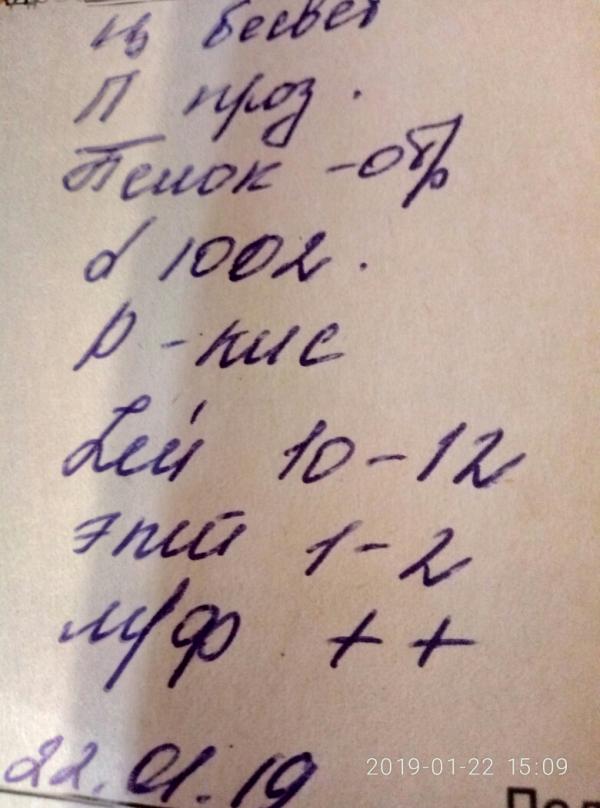 Ц бесвет
П проз.
Белок - отр
d 1002.
р - кис
Лей 10-12
Эпит 1-2
М/ф ++
22.01.19
2019-01-22 15:09